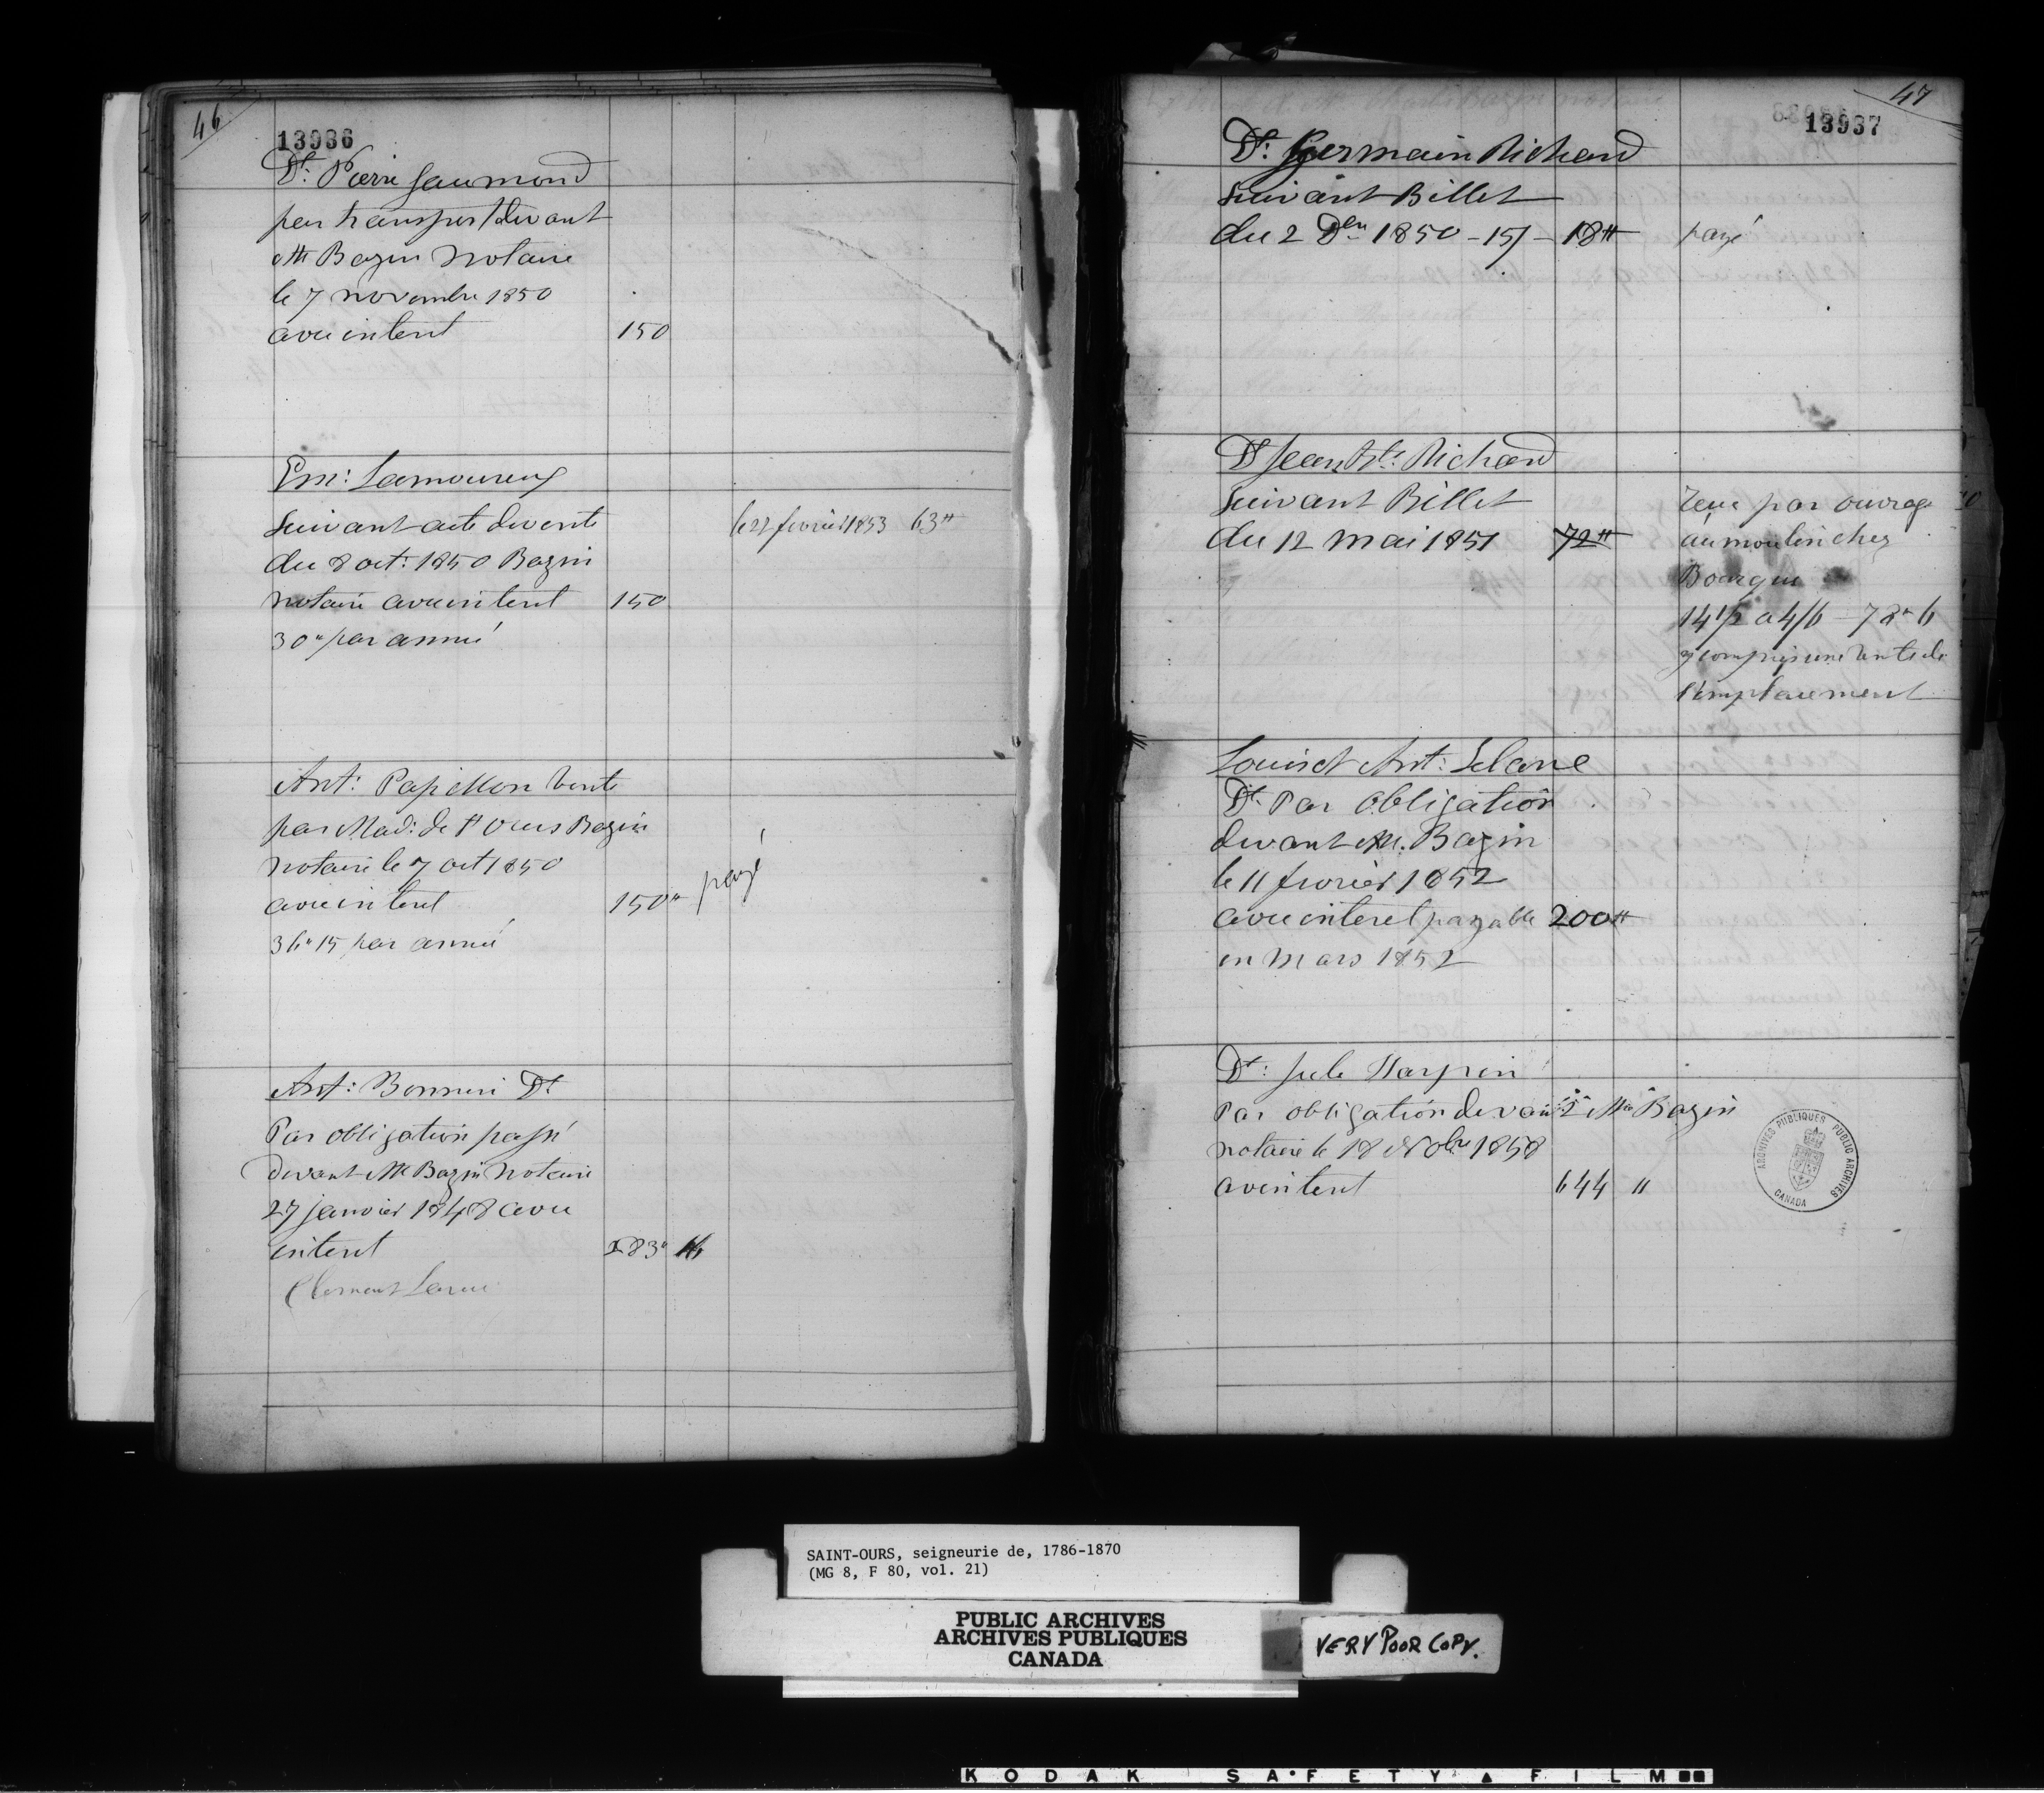 46
13936
Dt. Pierre Gaumond
par transport devant
Mt Bazin Notaire
le 7 novembre 1850
avec interet 150
Em: Lamoureux
Suivant acte de vente le 22 fevrier 1853 63 ₶
du 8 oct: 1850 Bazin
notaire avec interet 150
30" par année
Ant: Papillon vente
par Mad: de St Ours Bazin
notaire le 7 oct 1850
avec interet 150" payé
36" 15 par année
Ant: Bonnier Dt
Par obligation passé
devant Mt Bazin Notaire
27 janvier 1848 avec
interet 183" 16
Clement Larue
47
13937
Dt: Germain Richard
Suivant Billet
du 2 Dbre 1850 - 15/ - 18 ₶ payé
Dt Jean Bte: Richard
Suivant Billet Recu par ouvrage
du 12 mai 1851 72 ₶ au moulin chez
Bourque
14 1/2 a 4/6 - 78" 6
y compris une rente de
l'emplacement
Louis et Ant: Leclaire
Dt. Par obligation
devant M. Bazin
le 11 fevrier 1852
avec interet payable 200 ₶
en Mars 1852
Dt: Jule Harpin
Par obligation devant Mtre Bazin
notaire le 18 Nobre 1858
av interet 644 "
ARCHIVES PUBLIQUES PUBLIC ARCHIVES
CANADA
SAINT-OURS, seigneurie de, 1786-1870
(MG 8, F 80, vol. 21)
PUBLIC ARCHIVES
ARCHIVES PUBLIQUES
CANADA
VERY POOR COPY.
KODAK SAFETY FILM